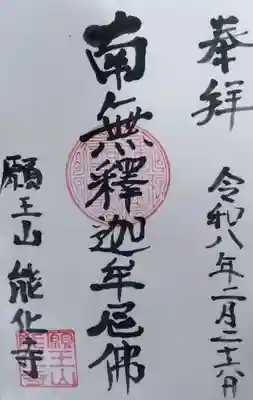 奉拝
令和八年二月二十六日
南無釋迦牟尼佛
願王山 能化寺
願王山